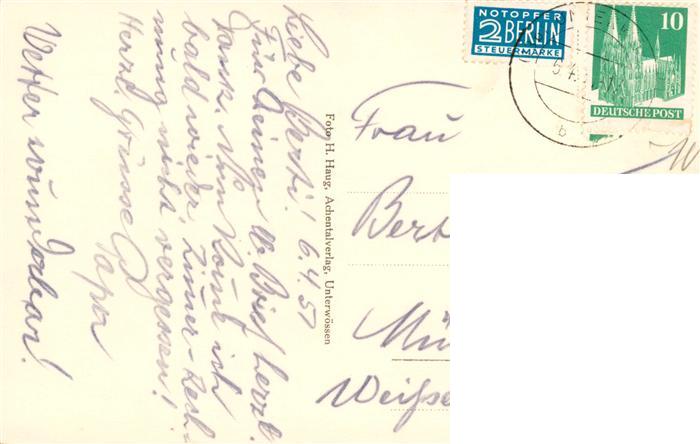 Liebe Berti! 6.4.51
Für Deinen lb. Brief herzl.
Dank. Nun komme ich
bald wieder, Zimmer-Rech-
nung nicht vergessen!
Herzl. Grüsse
Papa
Wetter wunderbar!
Foto H. Haug, Achentalverlag, Unterwössen
NOTOPFER
2 BERLIN
STEUERMARKE
10
DEUTSCHE POST
b
Frau
Bert
Mü
Weiße